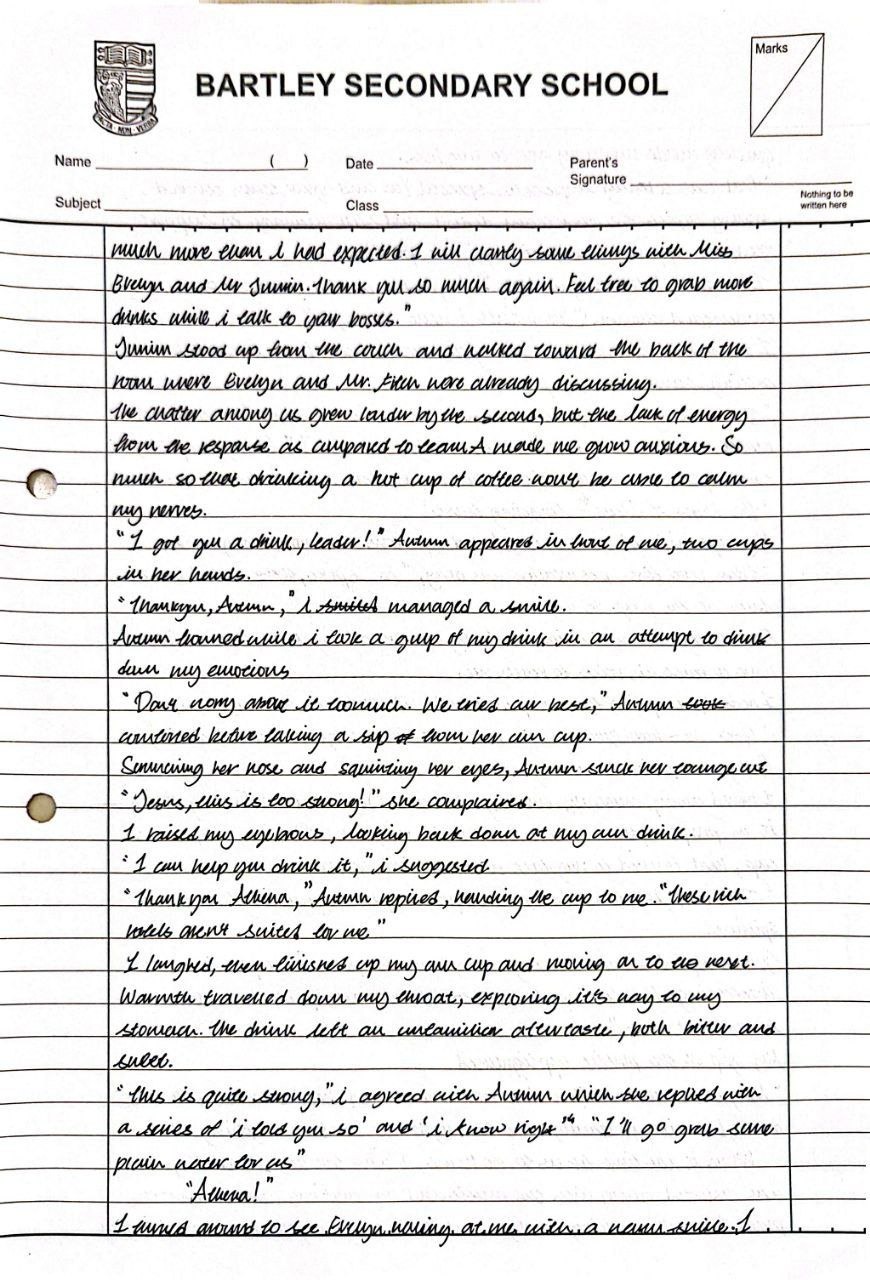 Marks
BARTLEY SECONDARY SCHOOL
ACTA NON VERBA
Name ( ) Date Parent's
Signature
Subject Class Nothing to be
written here
much more than I had expected. I will clarify some things with Miss
Evelyn and Mr Jumin. Thank you so much again. Feel free to grab more
drinks while i talk to your bosses."
Jumin stood up from the couch and walked toward the back of the
room where Evelyn and Mr. Fitch were already discussing.
The chatter among us grew louder by the second, but the lack of energy
from the response as compared to team A made me grow anxious. So
much so that drinking a hot cup of coffee won't be able to calm
my nerves.
"I got you a drink, leader!" Autumn appeared in front of me, two cups
in her hands.
"Thankyou, Autumn," I smiled managed a smile.
Autumn beamed while i took a gulp of my drink in an attempt to drink
down my emotions
"Don't worry about it toomuch. We tried our best," Autumn took
comforted before taking a sip of from her own cup.
Scrunching her nose and squinting her eyes, Autumn stuck her tounge out
"Jesus, this is too strong!" she complained.
I raised my eyebrows, looking back down at my own drink.
"I can help you drink it," i suggested
"Thankyou Athena," Autumn replied, handing the cup to me. "These rich
hotels aren't suited for me"
I laughed, then finished up my own cup and moving on to the next.
Warmth travelled down my throat, exploring it's way to my
stomach. The drink left an unfamiliar aftertaste, both bitter and
sweet.
"This is quite strong," i agreed with Autumn which she replied with
a series of 'i told you so' and 'i know right'" "I'll go grab some
plain water for us"
"Athena!"
I turned around to see Evelyn waving at me with a warm smile. I